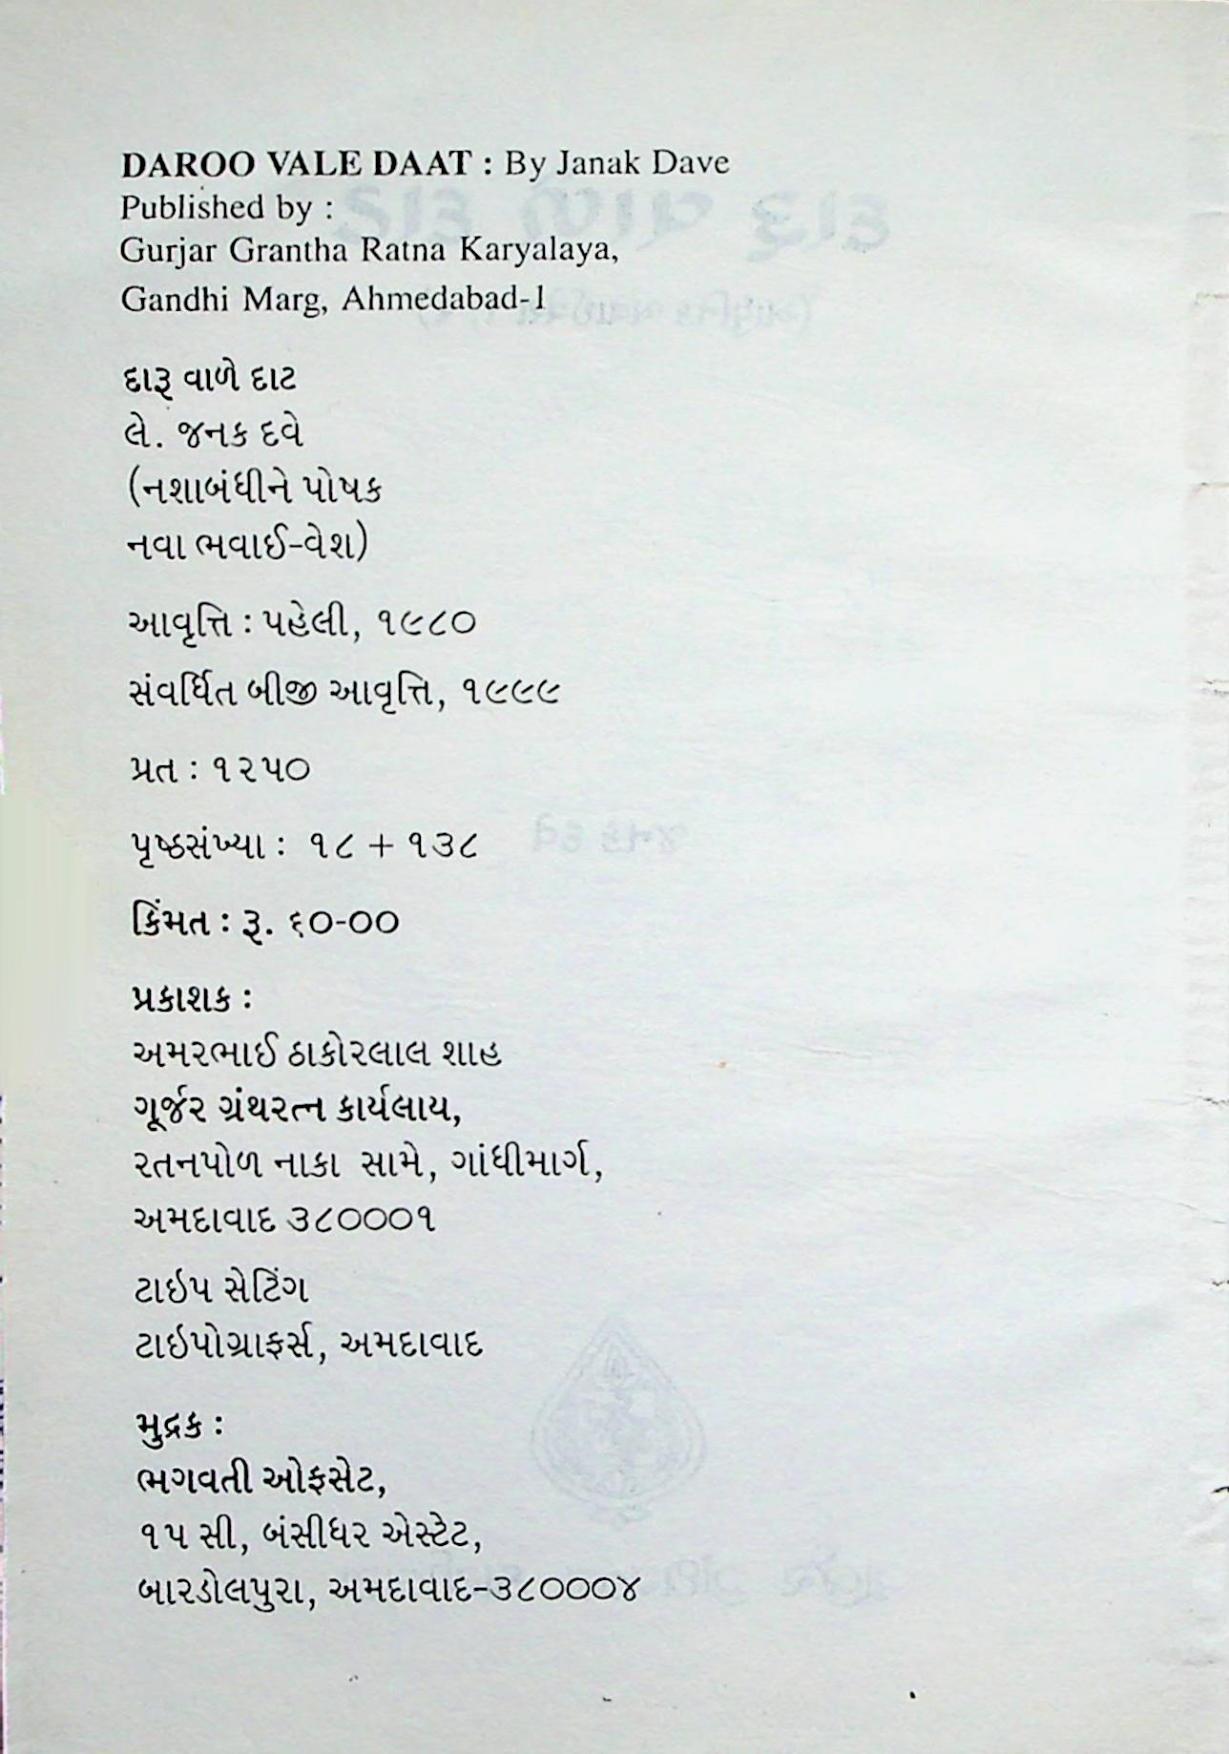 DAROO VALE DAAT : By Janak Dave
Published by :
Gurjar Grantha Ratna Karyalaya,
Gandhi Marg, Ahmedabad-1
દારૂ વાળે દાટ
લે. જનક દવે
(નશાબંધીને પોષક
નવા ભવાઈ-વેશ)
આવૃત્તિ : પહેલી, ૧૯૮૦
સંવર્ધિત બીજી આવૃત્તિ, ૧૯૯૯
પ્રત : ૧૨૫૦
પૃષ્ઠસંખ્યા : ૧૮ + ૧૩૮
કિંમત : રૂ. ૬૦-૦૦
પ્રકાશક :
અમરભાઈ ઠાકોરલાલ શાહ
ગૂર્જર ગ્રંથરત્ન કાર્યલાય,
રતનપોળ નાકા સામે, ગાંધીમાર્ગ,
અમદાવાદ ૩૮૦૦૦૧
ટાઇપ સેટિંગ
ટાઇપોગ્રાફર્સ, અમદાવાદ
મુદ્રક :
ભગવતી ઓફસેટ,
૧૫ સી, બંસીધર એસ્ટેટ,
બારડોલપુરા, અમદાવાદ-૩૮૦૦૦૪